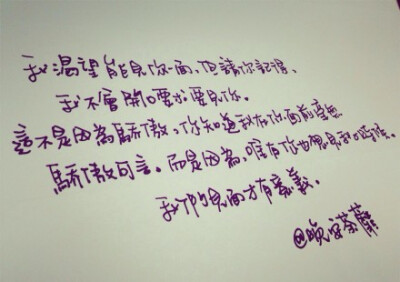 我渴望能見你一面，但請你記得，
我不會開口要求要見你。
這不是因為驕傲，你知道我在你面前毫無
驕傲可言。而是因為，唯有你也想見我的時候，
我們見面才有意義。
@晚安荼蘼